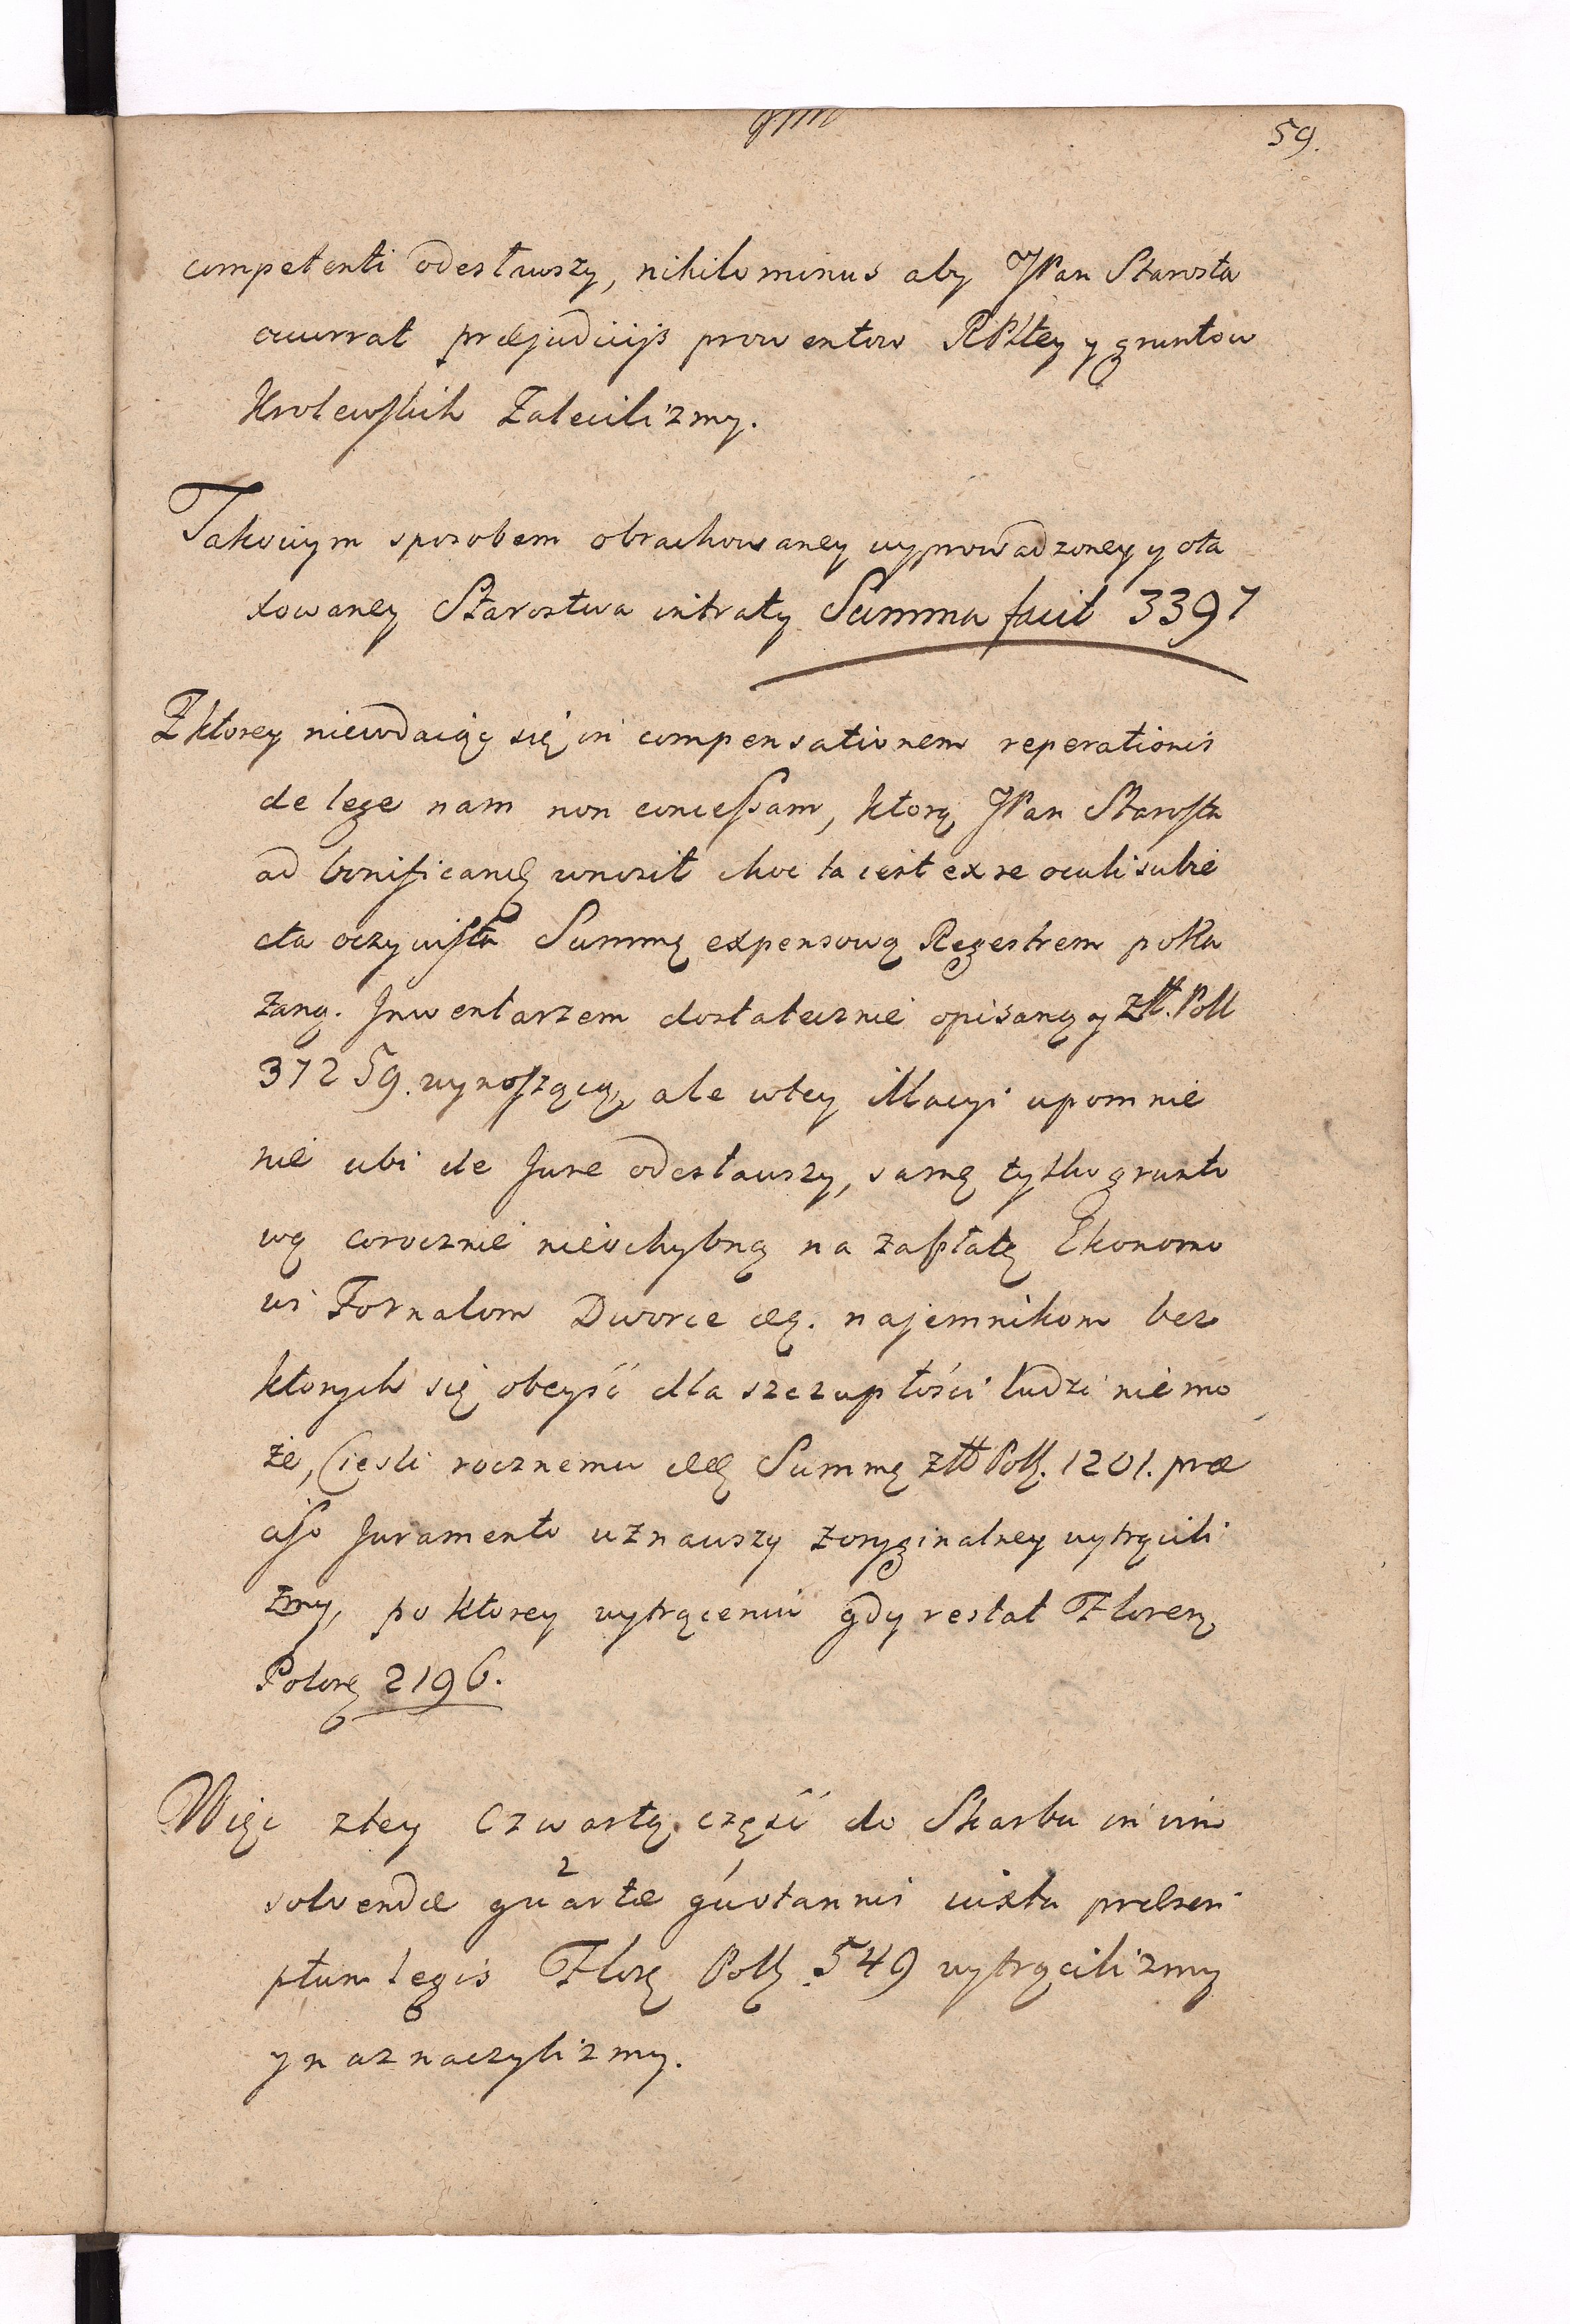 59.
competenti odesławszy, nihilominus aby JPan Starosta
occurrat præjudicijs prowentow RPltey y gruntow
Krolewskich Zalecilizmy.
Takowym sposobem obrachowaney wyprowadzoney y ota
xowaney Starostwa intraty Summa facit 3397
Z ktorey niewdaiąc się in compensationem reperationis
de lege nam non concessam, ktorą JPan Starosta
ad bonificandę wnosił choc ta iest ex re oculi subie
cta oczywista Summę expensową Regestrem poka
zaną. Inwentarzem dostatecznie opisaną y Złł. Poll
37259. wynoszącą, ale wtey illacyi upomnie
nie ubi de Jure odesławszy, samę tylko grunto
wą corocznie nieochybną na zapłatę Ekonomo
wi Fornalom Dworce etę. najemnikom bez
ktorych się obeyść dla szczupłości ludzi nie mo
że, Cieśli rocznemu etę Summę złł Pollę. 1201. præ
ciso Juramento uznawszy zoryginalney wytrącili
zmy, po ktorey wytrąceniu gdy restat Floreę
Poloę 2196.
Więc ztey Czwartą część do Skarbu in vim
solvendæ quartæ quotannis iuxta præscri
ptum legis Floę Pollę. 549 wytrącilizmy
y naznaczylizmy.